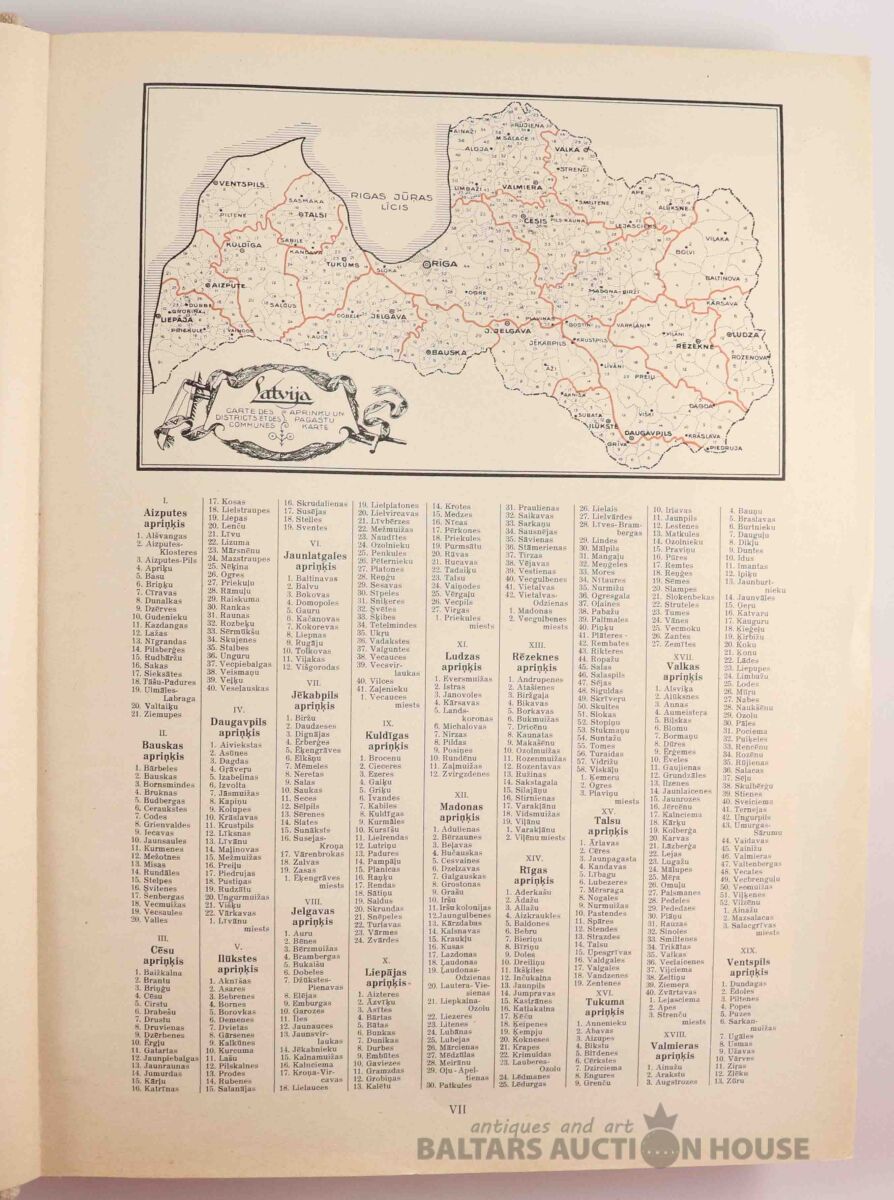 VENTSPILS
PILTENE
SASMAKA
TALSI
KULDĪGA
SABILE
KANDAVA
TUKUMS
SLOKA
RĪGAS JŪRAS
LĪCIS
RĪGA
AINAŽI
RŪJIENA
M.SALACE
ALOJA
VALKA
STRENČI
LIMBAŽI
VALMIERA
SMILTENE
APE
ALŪKSNE
CĒSIS
PILS KAUNA
LEJASCIEMS
VIĻAKA
BALVI
BALTINOVA
AIZPUTE
DURBE
GROBIŅA
LIEPĀJA
PRIEKULE
VAIŅODE
SALDUS
DOBELE
JELGAVA
AUCE
OGRE
MADONA-BIRŽI
KĀRSAVA
BAUSKA
J.JELGAVA
PĻAVIŅAS
GOSTIŅI
JĒKABPILS
KRUSTPILS
VARKĻĀNI
VIĻĀNI
RĒZEKNE
LUDZA
ROZENOVA
LĪVĀNI
PREIĻI
AKNĪSTA
SUBATA
VIŠĶI
DAGDA
ILŪKSTE
DAUGAVPILS
GRĪVA
KRĀSLAVA
PIEDRUJA
Latvija
CARTE DES
DISTRICTS ET DES
COMMUNES
APRIŅĶU UN
PAGASTU
KARTE
I.
Aizputes
apriņķis
1. Alšvangas
2. Aizputes-
Klosteres
3. Aizputes-Pils
4. Apriķu
5. Basu
6. Briņķu
7. Cīravas
8. Dunalkas
9. Dzērves
10. Gudenieku
11. Kazdangas
12. Lažas
13. Nīgrandas
14. Pilsberģes
15. Rudbāržu
16. Sakas
17. Sieksātes
18. Tāšu-Padures
19. Ulmāles-
Labraga
20. Valtaiķu
21. Ziemupes
II.
Bauskas
apriņķis
1. Bārbeles
2. Bauskas
3. Bornsmindes
4. Bruknas
5. Budbergas
6. Ceraukstes
7. Codes
8. Grienvaldes
9. Iecavas
10. Jaunsaules
11. Kurmenes
12. Mežotnes
13. Misas
14. Rundāles
15. Stelpes
16. Svitenes
17. Senbergas
18. Vecmuižas
19. Vecsaules
20. Valles
III.
Cēsu
apriņķis
1. Baižkalna
2. Brantu
3. Briņģu
4. Cēsu
5. Cirstu
6. Drabešu
7. Drustu
8. Druvienas
9. Dzērbenes
10. Ērgļu
11. Gatartas
12. Jaunpiebalgas
13. Jaunraunas
14. Jumurdas
15. Kārļu
16. Katrīnas
17. Kosas
18. Lielstraupes
19. Liepas
20. Lenču
21. Līvu
22. Lizuma
23. Mārsnēnu
24. Mazstraupes
25. Nēķina
26. Ogres
27. Priekuļu
28. Rāmuļu
29. Raiskuma
30. Rankas
31. Raunas
32. Rozbeķu
33. Sērmūkšu
34. Skujenes
35. Stalbes
36. Unguru
37. Vecpiebalgas
38. Veismaņu
39. Veļķu
40. Veselauskas
IV.
Daugavpils
apriņķis
1. Aiviekstas
2. Asūnes
3. Dagdas
4. Grāveru
5. Izabelinas
6. Izvolta
7. Jāsmuižas
8. Kapiņu
9. Kolupes
10. Krāslavas
11. Krustpils
12. Līksmas
13. Līvānu
14. Maļinovas
15. Mežmuižas
16. Preiļu
17. Piedrujas
18. Pustiņas
19. Rudzātu
20. Ungurmuižas
21. Višķu
22. Vārkavas
1. Līvānu
miests
V.
Ilūkstes
apriņķis
1. Aknīšas
2. Asares
3. Bebrenes
4. Bornes
5. Borovkas
6. Demenes
7. Dvietas
8. Gārsenes
9. Kalkūnes
10. Kurcuma
11. Lašu
12. Pilskalnes
13. Prodes
14. Rubenes
15. Salanājas
16. Skrudalienas
17. Susējas
18. Stelles
19. Sventes
VI.
Jaunlatgales
apriņķis
1. Baltinavas
2. Balvu
3. Bokovas
4. Domopoles
5. Gauru
6. Kačanovas
7. Kokorevas
8. Liepnas
9. Rugāju
10. Tolkovas
11. Viļakas
12. Višgorodas
VII.
Jēkabpils
apriņķis
1. Biržu
2. Daudzeses
3. Dignājas
4. Ērberģes
5. Eķengrāves
6. Elkšņu
7. Mēmeles
8. Neretas
9. Salas
10. Saukas
11. Seces
12. Sēlpils
13. Sērenes
14. Slates
15. Sunākste
16. Susējas-
Kroņa
17. Vārenbrokas
18. Zalvas
19. Zasas
1. Eķengrāves
miests
VIII.
Jelgavas
apriņķis
1. Auru
2. Bēnes
3. Bērzmuižas
4. Brambergas
5. Bukaišu
6. Dobeles
7. Džūkstes-
Pienavas
8. Elējas
9. Emburgas
10. Garozes
11. Īles
12. Jaunauces
13. Jaunsvir-
laukas
14. Jēkabnieku
15. Kalnamuižas
16. Kalnciema
17. Kroņa-Vir-
cavas
18. Lielauces
19. Lielplatones
20. Lielvircavas
21. Līvbērzes
22. Mežmuižas
23. Naudītes
24. Ozolnieku
25. Penkules
26. Pēternieku
27. Platones
28. Reņģu
29. Sesavas
30. Sīpeles
31. Sniķeres
32. Svētes
33. Šķibes
34. Tetelmindes
35. Ukru
36. Vadakstes
37. Valguntes
38. Vecauces
39. Vecsvir-
laukas
40. Vilces
41. Zaļenieku
1. Vecauces
miests
IX.
Kuldīgas
apriņķis
1. Brocenu
2. Cieceres
3. Ezeres
4. Gaiķu
5. Griķu
6. Īvandes
7. Kabiles
8. Kuldīgas
9. Kurmāles
10. Kursīšu
11. Lielrendas
12. Lutriņu
13. Padures
14. Pampāļu
15. Planicas
16. Raņķu
17. Rendas
18. Sātiņu
19. Saldus
20. Skrundas
21. Snēpeles
22. Turlavas
23. Vārmes
24. Zvārdes
X.
Liepājas
apriņķis
1. Aizteres
2. Āzvīķu
3. Asītes
4. Bārtas
5. Bātas
6. Bunkas
7. Dunikas
8. Durbes
9. Embūtes
10. Gaviezes
11. Gramzdas
12. Grobiņas
13. Kalētu
14. Krotes
15. Medzes
16. Nīcas
17. Pērkones
18. Priekules
19. Purmsātu
20. Rāvas
21. Rucavas
22. Tadaiķu
23. Talsu
24. Vaiņodes
25. Vērgaļu
26. Vecpils
27. Virgas
1. Priekules
miests
XI.
Ludzas
apriņķis
1. Eversmuižas
2. Istras
3. Janovoles
4. Kārsavas
5. Lands-
koronas
6. Michalovas
7. Nirzas
8. Pildas
9. Posiņes
10. Rundēnu
11. Zaļmuižas
12. Zvirgzdenes
XII.
Madonas
apriņķis
1. Adulienas
2. Bērzaunes
3. Beļavas
4. Bučauskas
5. Cesvaines
6. Dzelzavas
7. Galgauskas
8. Grostonas
9. Grašu
10. Iršu
11. Iršu kolonijas
12. Jaungulbenes
13. Kārzdabas
14. Kalsnavas
15. Kraukļu
16. Kusas
17. Lazdonas
18. Ļaudonas
19. Ļaudonas-
Odzienas
20. Lautera-Vie-
sienas
21. Liepkalna-
Ozolu
22. Liezeres
23. Litenes
24. Lubānas
25. Lubejas
26. Mārcienas
27. Mēdzūlas
28. Meirānu
29. Oļu-Apel-
tienas
30. Patkules
31. Praulienas
32. Saikavas
33. Sarkaņu
34. Sausnējas
35. Sāvienas
36. Stāmerienas
37. Tirzas
38. Vējavas
39. Vestienas
40. Vecgulbenes
41. Vietalvas
42. Vietalvas-
Odzienas
1. Madonas
2. Vecgulbenes
miests
XIII.
Rēzeknes
apriņķis
1. Andrupenes
2. Atašienes
3. Biržgaļa
4. Bikavas
5. Borkavas
6. Bukmuižas
7. Dricēnu
8. Kaunatas
9. Makašēnu
10. Ozolmuižas
11. Rozenmuižas
12. Rozentavas
13. Ružinas
14. Sakstagala
15. Silajāņu
16. Stirnienas
17. Varakļānu
18. Vidsmuižas
19. Viļānu
1. Varakļānu
2. Viļēnu miests
XIV.
Rīgas
apriņķis
1. Aderkašu
2. Ādažu
3. Allažu
4. Aizkraukles
5. Baldones
6. Bebru
7. Bieriņu
8. Bīriņu
9. Doles
10. Dreiliņu
11. Ikšķiles
12. Inčukalna
13. Jaunpils
14. Jumpravas
15. Kastrānes
16. Katlakalna
17. Ķēču
18. Keipenes
19. Ķempju
20. Kokneses
21. Krapes
22. Krimuldas
23. Lauberes-
Ozolu
24. Lēdmanes
25. Lēdurgas
26. Lielais
27. Lielvārdes
28. Līves-Bram-
bergas
29. Lindes
30. Mālpils
31. Mangaļu
32. Meņģeles
33. Mores
34. Nītaures
35. Nurmižu
36. Ogresgala
37. Oļaines
38. Pabažu
39. Paltmales
40. Piņķu
41. Plāteres-
42. Rembates
43. Rīkteres
44. Ropažu
45. Salas
46. Salaspils
47. Sējas
48. Siguldas
49. Skrīveru
50. Skultes
51. Slokas
52. Stopiņu
53. Stukmaņu
54. Suntažu
55. Tomes
56. Tūraidas
57. Vidrižu
58. Viskāļu
1. Ķemeru
2. Ogres
3. Pļaviņu
miests
XV.
Talsu
apriņķis
1. Ārlavas
2. Cēres
3. Jaunpagasta
4. Kandavas
5. Lībagu
6. Lubezeres
7. Mērsraga
8. Nogales
9. Nurmuižas
10. Pastendes
11. Spāres
12. Stendes
13. Strazdes
14. Talsu
15. Upesgrīvas
16. Valdgales
17. Valgales
18. Vandzenes
19. Zentenes
XVI.
Tukuma
apriņķis
1. Annenieku
2. Abavas
3. Aizupes
4. Bikstu
5. Bltdenes
6. Cērkstes
7. Dzirciema
8. Engures
9. Grenču
10. Irlavas
11. Jaunpils
12. Lestenes
13. Matkules
14. Ozolnieku
15. Praviņu
16. Pūres
17. Remtes
18. Reņģes
19. Sēmes
20. Slampes
21. Slokenbekas
22. Struteles
23. Tumes
24. Vānes
25. Vecmoku
26. Zantes
27. Zemītes
XVII.
Valkas
apriņķis
1. Alsviķa
2. Alūksnes
3. Annas
4. Aumeisteru
5. Biļskas
6. Blomu
7. Bormaņu
8. Dūres
9. Ērģemes
10. Ēveles
11. Gaujienas
12. Grundzāles
13. Ilzenes
14. Jaunlaicenes
15. Jaunrozes
16. Jērcēnu
17. Kalnciema
18. Kārķu
19. Kolberģa
20. Karvas
21. Lāzberģa
22. Lejas
23. Lugažu
24. Mālupes
25. Mēra
26. Omuļu
27. Palsmanes
28. Pedeles
29. Pededzes
30. Plāņu
31. Rauzas
32. Sinoles
33. Smiltenes
34. Trikātas
35. Valkas
36. Veclaicenes
37. Vijciema
38. Zeltiņu
39. Ziemeru
40. Zvārtavas
1. Lejasciema
2. Apes
3. Strenču
miests
XVIII.
Valmieras
apriņķis
1. Ainažu
2. Arakstu
3. Augstrozes
4. Bauņu
5. Braslavas
6. Burtnieku
7. Dauguļu
8. Dikļu
9. Duntes
10. Idus
11. Imantas
12. Ipiķu
13. Jaunburt-
nieku
14. Jaunvāles
15. Ģeru
16. Katvaru
17. Kauguru
18. Kieģeļu
19. Ķirbižu
20. Koku
21. Ķoņu
22. Lādes
23. Liepupes
24. Limbažu
25. Lodes
26. Mūru
27. Nabes
28. Naukšēnu
29. Ozolu
30. Pāles
31. Pociema
32. Puiķeles
33. Rencēnu
34. Rozēnu
35. Rūjienas
36. Salacas
37. Sēļu
38. Skulberģu
39. Stienes
40. Sveiciema
41. Ternejas
42. Ungurpils
43. Umurgas-
Sārumu
44. Vaidavas
45. Vainižu
46. Valmieras
47. Valtenbergas
48. Vecates
49. Vecbrenguļu
50. Vecmuižas
51. Viļķenes
52. Vilzēnu
1. Ainažu
2. Mazsalacas
3. Salacgrīvas
miests
XIX.
Ventspils
apriņķis
1. Dundagas
2. Ēdoles
3. Piltenes
4. Popes
5. Puzes
6. Sarkan-
muižas
7. Ugāles
8. Usmas
9. Užavas
10. Vārves
11. Ziras
12. Zlēku
13. Zūru
VII
antiques and art
BALTARS AUCTION HOUSE